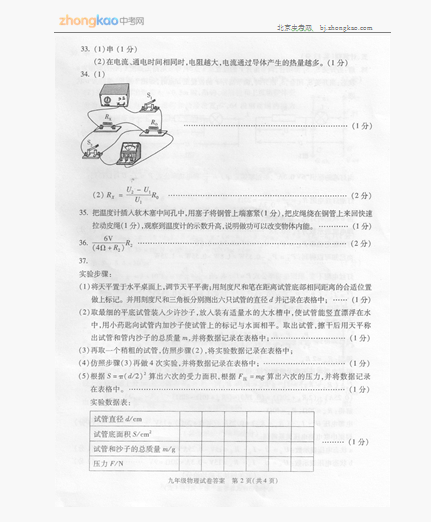 zhongkao中考网
北京中考网 bj.zhongkao.com
33. (1)串(1分)
(2)在电流、通电时间相同时,电阻越大,电流通过导体产生的热量越多。(1分)
34. (1)
S₁
Rₓ
R₀
S₂
(1分)
(2) Rₓ = (U₂ − U₁)/U₁ R₀ (2分)
35. 把温度计插入软木塞中间孔中,用塞子将钢管上端塞紧(1分),把皮绳绕在钢管上来回快速
拉动皮绳(1分),观察到温度计的示数升高,说明做功可以改变物体内能。 (1分)
36. 6V/(4Ω+R₂) R₂ (2分)
37.
实验步骤:
(1)将天平置于水平桌面上,调节天平平衡;用刻度尺和笔在距离试管底部相同距离的合适位置
做上标记。并用刻度尺和三角板分别测出六只试管的直径d并记录在表格中; (1分)
(2)取最细的平底试管装入少许沙子,放入装有适量水的大水槽中,使试管能竖直漂浮在水
中,用小药匙向试管内加沙子使试管上的标记与水面相平。取出试管,擦干后用天平称
出试管和管内沙子的总质量m,并将数据记录在表格中; (1分)
(3)再取一个稍粗的试管,仿照步骤(2),将实验数据记录在表格中;
(4)仿照步骤(3)再做4次实验,并将数据记录在表格中; (1分)
(5)根据S=π(d/2)²算出六次的受力面积,根据F=mg算出六次的压力,并将数据记录
在表格中。 (1分)
实验数据表:
试管直径d/cm
试管底面积S/cm²
试管和沙子的总质量m/g
压力F/N
(1分)
九年级物理试卷答案 第2页(共4页)